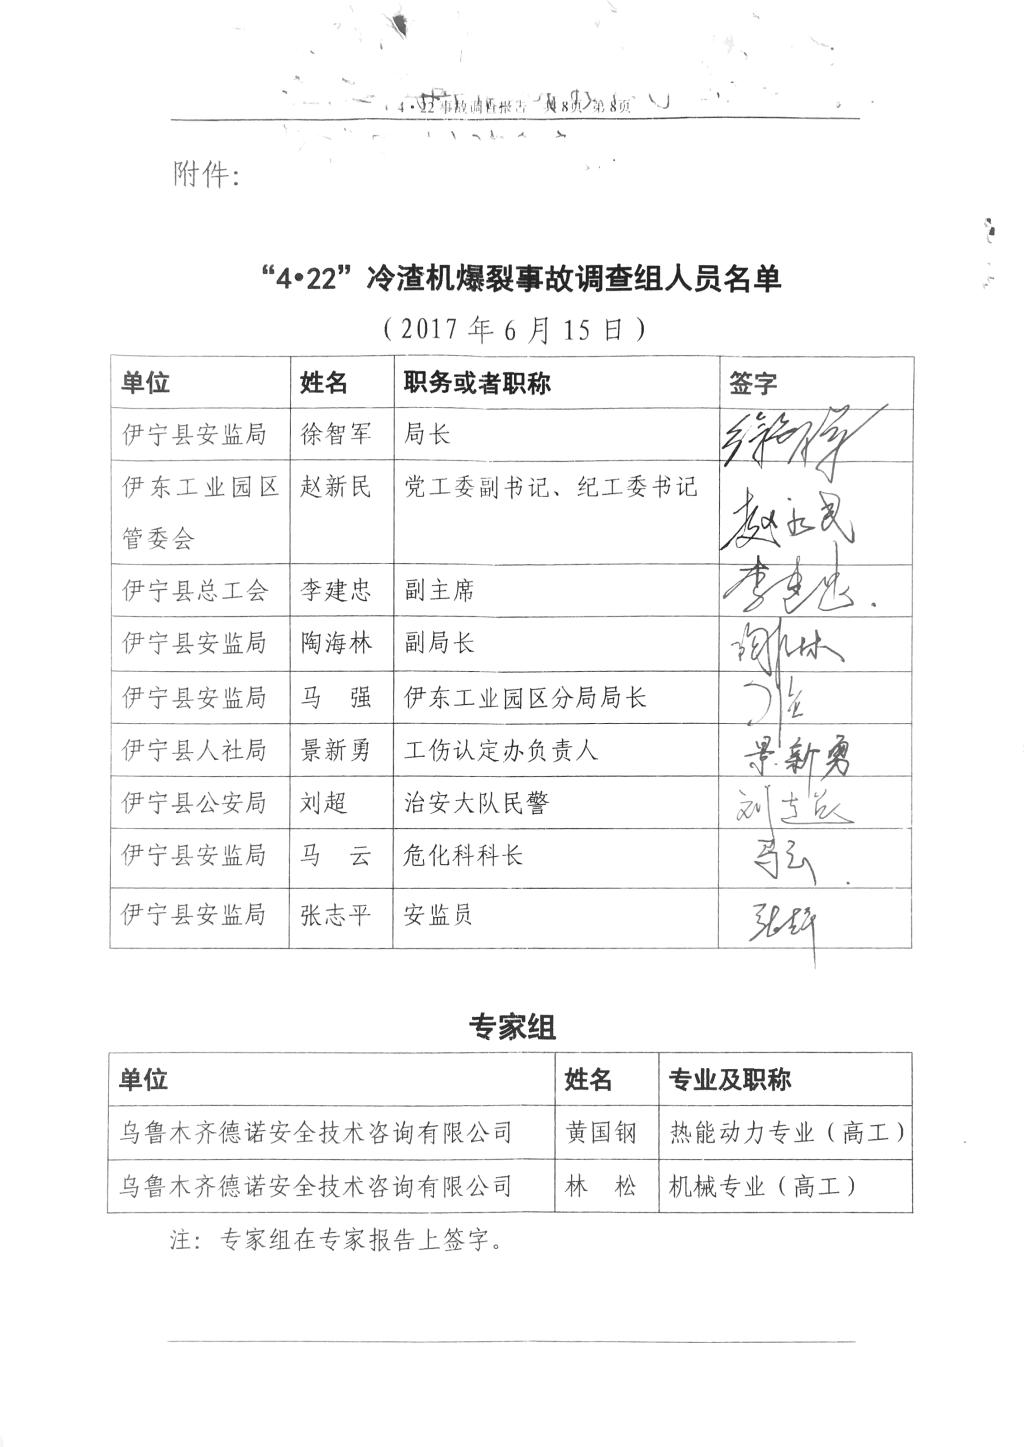 4·22事故调查报告 共8页 第8页
附件：
“4•22”冷渣机爆裂事故调查组人员名单
（2017年6月15日）
单位 姓名 职务或者职称 签字
伊宁县安监局 徐智军 局长
伊东工业园区 赵新民 党工委副书记、纪工委书记
管委会 赵新民
伊宁县总工会 李建忠 副主席 李建忠
伊宁县安监局 陶海林 副局长
伊宁县安监局 马 强 伊东工业园区分局局长
伊宁县人社局 景新勇 工伤认定办负责人 景新勇
伊宁县公安局 刘超 治安大队民警 刘超
伊宁县安监局 马 云 危化科科长 马云
伊宁县安监局 张志平 安监员
专家组
单位 姓名 专业及职称
乌鲁木齐德诺安全技术咨询有限公司 黄国钢 热能动力专业（高工）
乌鲁木齐德诺安全技术咨询有限公司 林 松 机械专业（高工）
注：专家组在专家报告上签字。